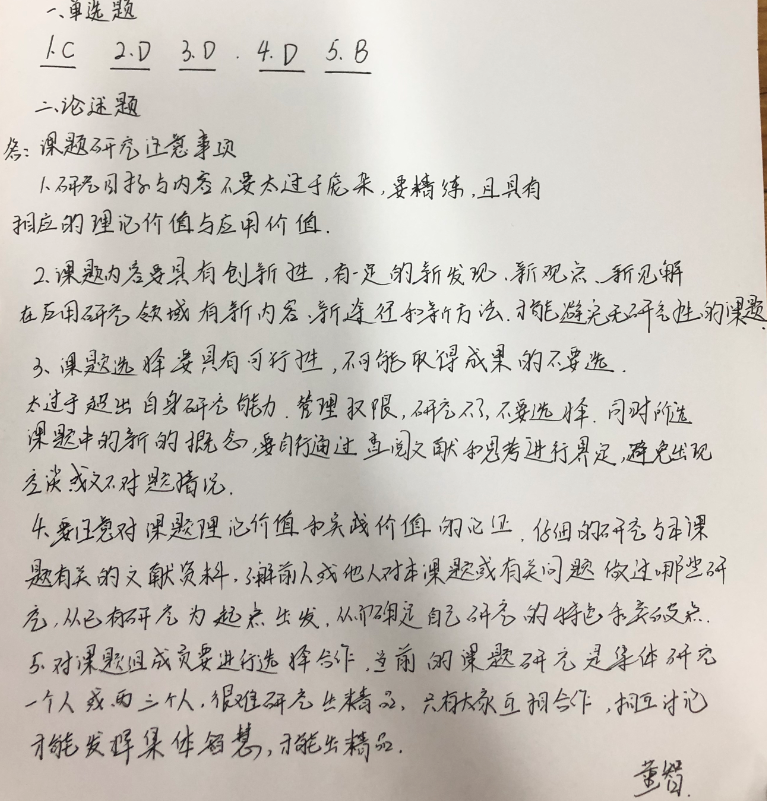 一、单选题
1.C 2.D 3.D. 4.D 5.B
二、论述题
答：课题研究注意事项
1.研究目标与内容不要太过于庞杂，要精练，且具有
相应的理论价值与应用价值.
2.课题内容要具有创新性，有一定的新发现、新观点、新见解
在应用研究领域有新内容、新途径和新方法.才能避免无研究性的课题.
3、课题选择要具有可行性，不可能取得成果的不要选.
太过于超出自身研究能力.管理权限，研究不了，不要选择.同时所选
课题中的新的概念，要自行通过查阅文献和思考进行界定，避免出现
空谈或文不对题情况.
4.要注意对课题理论价值和实践价值的论证.仔细的研究与本课
题有关的文献资料，了解前人或他人对本课题或有关问题做过哪些研
究，从已有研究为起点出发，从而确定自己研究的特色和突破点.
5.对课题组成员要进行选择合作，当前的课题研究是集体研究
一个人或两三个人，很难研究出精品，只有大家互相合作，相互讨论
才能发挥集体智慧，才能出精品.
董智.